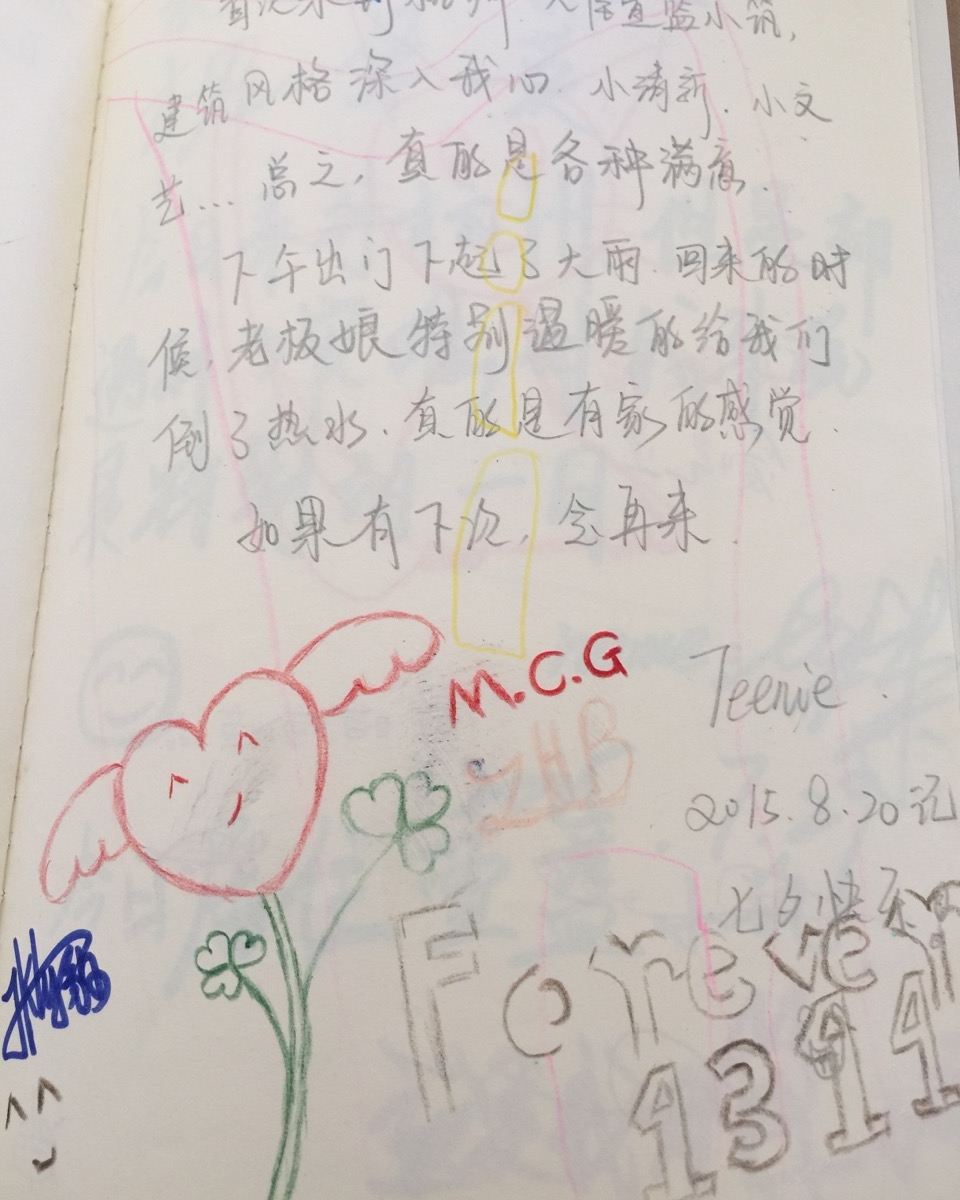 小筑,
建筑风格深入我心. 小清新. 小文
艺... 总之, 真的是各种满意.
下午出门下起了大雨. 回来的时
候, 老板娘特别温暖的给我们
倒了热水. 真的是有家的感觉.
如果有下次, 会再来.
M.C.G
Teenie.
ZHB
2015.8.20记
七夕快乐
Forever
1314